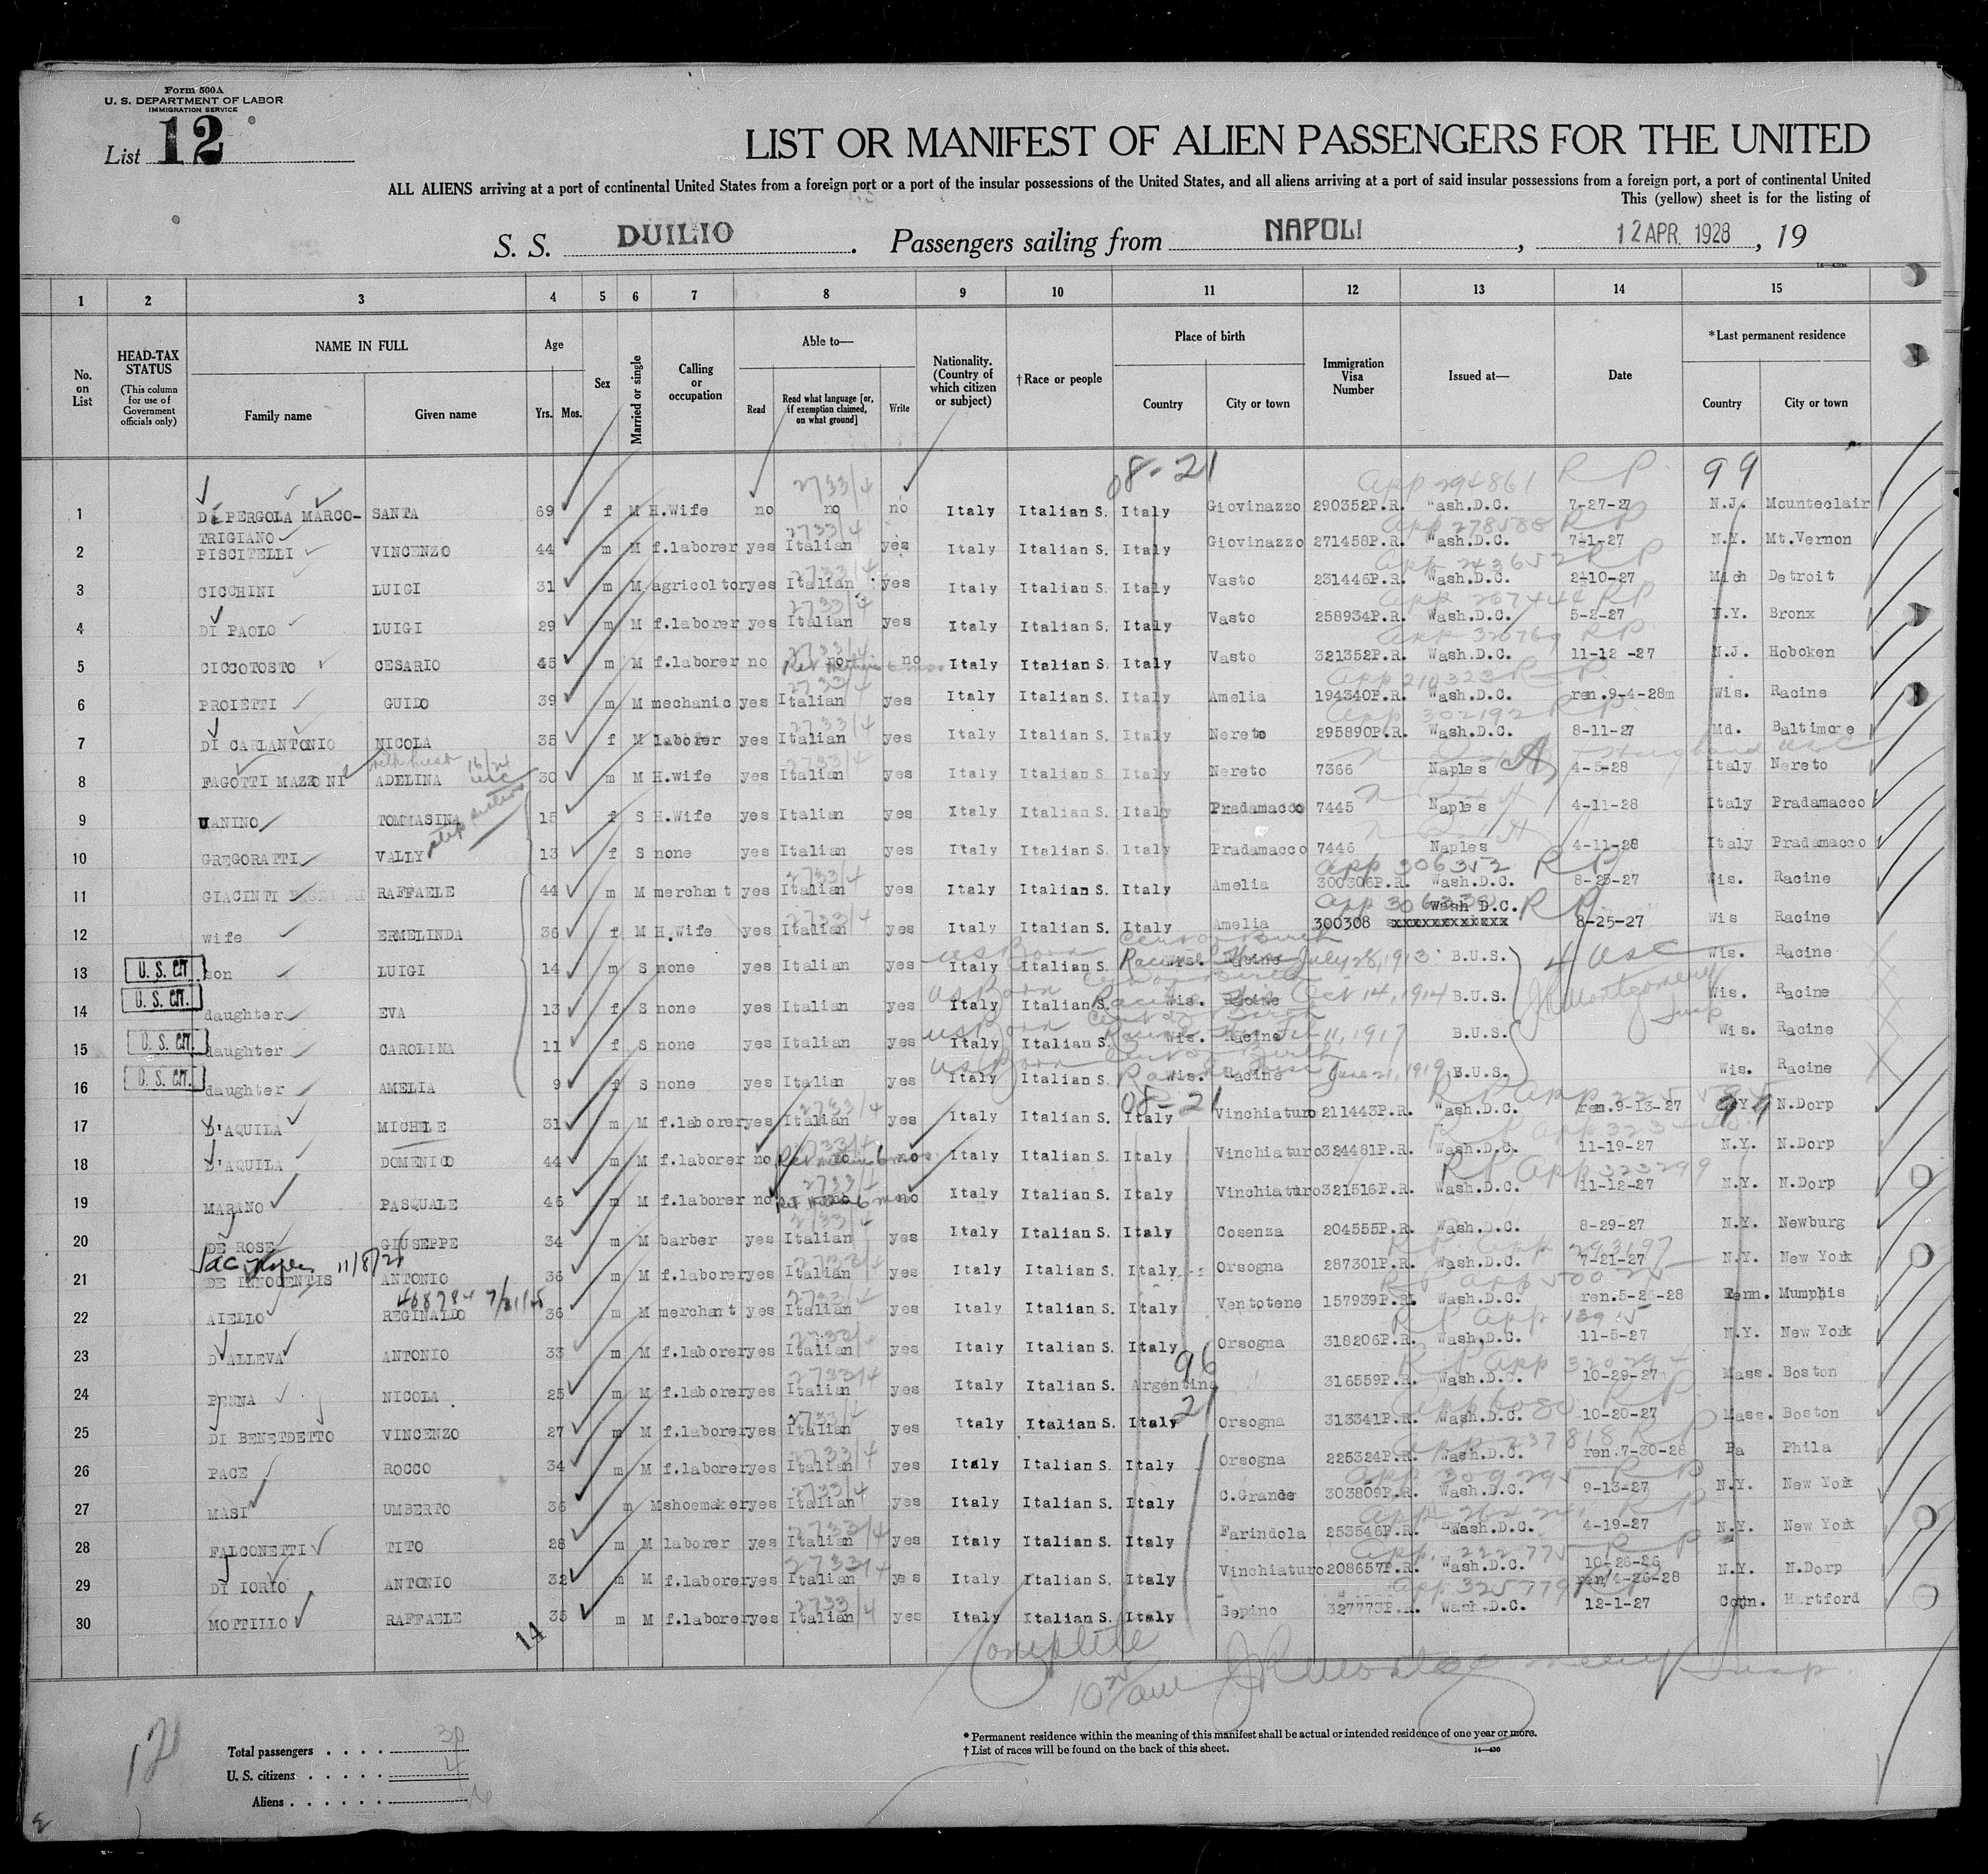 Form 500A
U. S. DEPARTMENT OF LABOR
IMMIGRATION SERVICE
List 12
LIST OR MANIFEST OF ALIEN PASSENGERS FOR THE UNITED
ALL ALIENS arriving at a port of continental United States from a foreign port or a port of the insular possessions of the United States, and all aliens arriving at a port of said insular possessions from a foreign port, a port of continental United
This (yellow) sheet is for the listing of
S. S. DUILIO. Passengers sailing from NAPOLI, 12 APR. 1928, 19
1 2 3 4 5 6 7 8 9 10 11 12 13 14 15
No. on List
HEAD-TAX STATUS (This column for use of Government officials only)
NAME IN FULL
Family name Given name
Age
Yrs. Mos.
Sex
Married or single
Calling or occupation
Able to—
Read
Read what language [or, if exemption claimed, on what ground]
Write
Nationality. (Country of which citizen or subject)
† Race or people
Place of birth
Country City or town
Immigration Visa Number
Issued at—
Date
* Last permanent residence
Country City or town
08-21 99
app 294861 R P
1 DI PERGOLA MARCO- SANTA 69 f M H.Wife no no no Italy Italian S. Italy Giovinazzo 290352P.R. "ash.D.C. 7-27-27 N.J. Mounteclair
TRIGIANO
2 PISCITELLI VINCENZO 44 m M f.laborer yes Italian yes Italy Italian S. Italy Giovinazzo 271458P.R. "ash.D.C. 7-1-27 N.Y. Mt.Vernon
3 CICCHINI LUIGI 31 m M agricoltor yes Italian yes Italy Italian S. Italy Vasto 231446P.R. Wash.D.C. 2-10-27 Mich Detroit
4 DI PAOLO LUIGI 29 m M f.laborer yes Italian yes Italy Italian S. Italy Vasto 258934P.R. Wash.D.C. 5-2-27 N.Y. Bronx
5 CICCOTOSTO CESARIO 45 m M f.laborer no no no Italy Italian S. Italy Vasto 321352P.R. Wash.D.C. 11-12 -27 N.J. Hoboken
6 PROIETTI GUIDO 39 m M mechanic yes Italian yes Italy Italian S. Italy Amelia 194340P.R. Wash.D.C. ren.9-4-28m Wis. Racine
7 DI CARLANTONIO NICOLA 35 f M laborer yes Italian yes Italy Italian S. Italy Nereto 295890P.R. Wash.D.C. 8-11-27 Md. Baltimore
8 FAGOTTI MAZZONI ADELINA 30 m M H.wife yes Italian yes Italy Italian S. Italy Nereto 7366 Naples 4-5-28 Italy Nereto
9 UANINO TOMMASINA 15 f S H.Wife yes Italian yes Italy Italian S. Italy Pradamacco 7445 Naples 4-11-28 Italy Pradamacco
10 GREGORATTI VALLY 13 f S none yes Italian yes Italy Italian S. Italy Pradamacco 7446 Naples 4-11-28 Italy Pradamacco
app 306352 R P
11 GIACINTI RAFFAELE 44 m M merchant yes Italian yes Italy Italian S. Italy Amelia 300306P.R. Wash.D.C. 8-25-27 Wis. Racine
Wash D.C.
12 wife ERMELINDA 36 f M H.Wife yes Italian yes Italy Italian S. Italy Amelia 300308 xxxxxxxxxxxx 8-25-27 Wis Racine
13 U. S. CIT. son LUIGI 14 m S none yes Italian yes Italy Italian S. Wis. Racine July 28, 1913 B.U.S. 4 USC Wis. Racine
14 U. S. CIT. daughter EVA 13 f S none yes Italian yes Italy Italian S. Wis. Racine Oct 14, 1914 B.U.S. JR Montgomery Insp Wis. Racine
15 U. S. CIT. daughter CAROLINA 11 f S none yes Italian yes Italy Italian S. Wis. Racine 11, 1917 B.U.S. Wis. Racine
16 U. S. CIT. daughter AMELIA 9 f S none yes Italian yes Italy Italian S. Wis. Racine June 21, 1919 B.U.S. Wis. Racine
08-21
17 D'AQUILA MICHELE 31 m M f.laborer yes Italian yes Italy Italian S. Italy Vinchiaturo 211443P.R. "ash.D.C. ren.9-13-27 N.Y. N.Dorp
18 D'AQUILA DOMENICO 44 m M f.laborer no no no Italy Italian S. Italy Vinchiaturo 324481P.R. Wash.D.C. 11-19-27 N.Y. N.Dorp
R P app 323299
19 MARANO PASQUALE 46 m M f.laborer no no no Italy Italian S. Italy Vinchiaturo 321516P.R. Wash.D.C. 11-12-27 N.Y. N.Dorp
20 DE ROSE GIUSEPPE 34 m M barber yes Italian yes Italy Italian S. Italy Cosenza 204555P.R. Wash.D.C. 8-29-27 N.Y. Newburg
21 DE INNOCENTIS ANTONIO 36 m M f.laborer yes Italian yes Italy Italian S. Italy Orsogna 287301P.R. Wash.D.C. 7-21-27 N.Y. New York
22 AIELLO REGINALDO 36 m M merchant yes Italian yes Italy Italian S. Italy Ventotene 157939P.R. Wash.D.C. ren.5-25-28 Tenn. Mumphis
23 D'ALLEVA ANTONIO 33 m M f.laborer yes Italian yes Italy Italian S. Italy Orsogna 318206P.R. Wash.D.C. 11-5-27 N.Y. New York
96
24 PENNA NICOLA 25 m M f.laborer yes Italian yes Italy Italian S. Argentina 316559P.R. Wash.D.C. 10-29-27 Mass. Boston
21
25 DI BENETDETTO VINCENZO 27 m M f.laborer yes Italian yes Italy Italian S. Italy Orsogna 313341P.R. Wash.D.C. 10-20-27 Mass. Boston
app 237818 R P
26 PACE ROCCO 34 m M f.laborer yes Italian yes Italy Italian S. Italy Orsogna 225324P.R. Wash.D.C. ren.7-30-28 Pa Phila
app 309295 R P
27 MASI UMBERTO 36 m M shoemaker yes Italian yes Italy Italian S. Italy C.Grande 303809P.R. Wash.D.C. 9-13-27 N.Y. New York
28 FALCONETTI TITO 28 m M laborer yes Italian yes Italy Italian S. Italy Farindola 253546P.R. "Wash.D.C. 4-19-27 N.Y. New York
app. 222775 R P
10-26-26
29 DI IORIO ANTONIO 32 m M f.laborer yes Italian yes Italy Italian S. Italy Vinchiaturo 208657P.R. Wash.D.C. ren 4-26-28 N.Y. N.Dorp
app 325779 R P
30 MOTTILLO RAFFAELE 35 m M f.laborer yes Italian yes Italy Italian S. Italy Sepino 327773P.R. Wash.D.C. 12-1-27 Conn. Hartford
14
Complete
* Permanent residence within the meaning of this manifest shall be actual or intended residence of one year or more.
† List of races will be found on the back of this sheet.
14—430
Total passengers . . . . 30
U. S. citizens . . . . . 4
Aliens . . . . . .